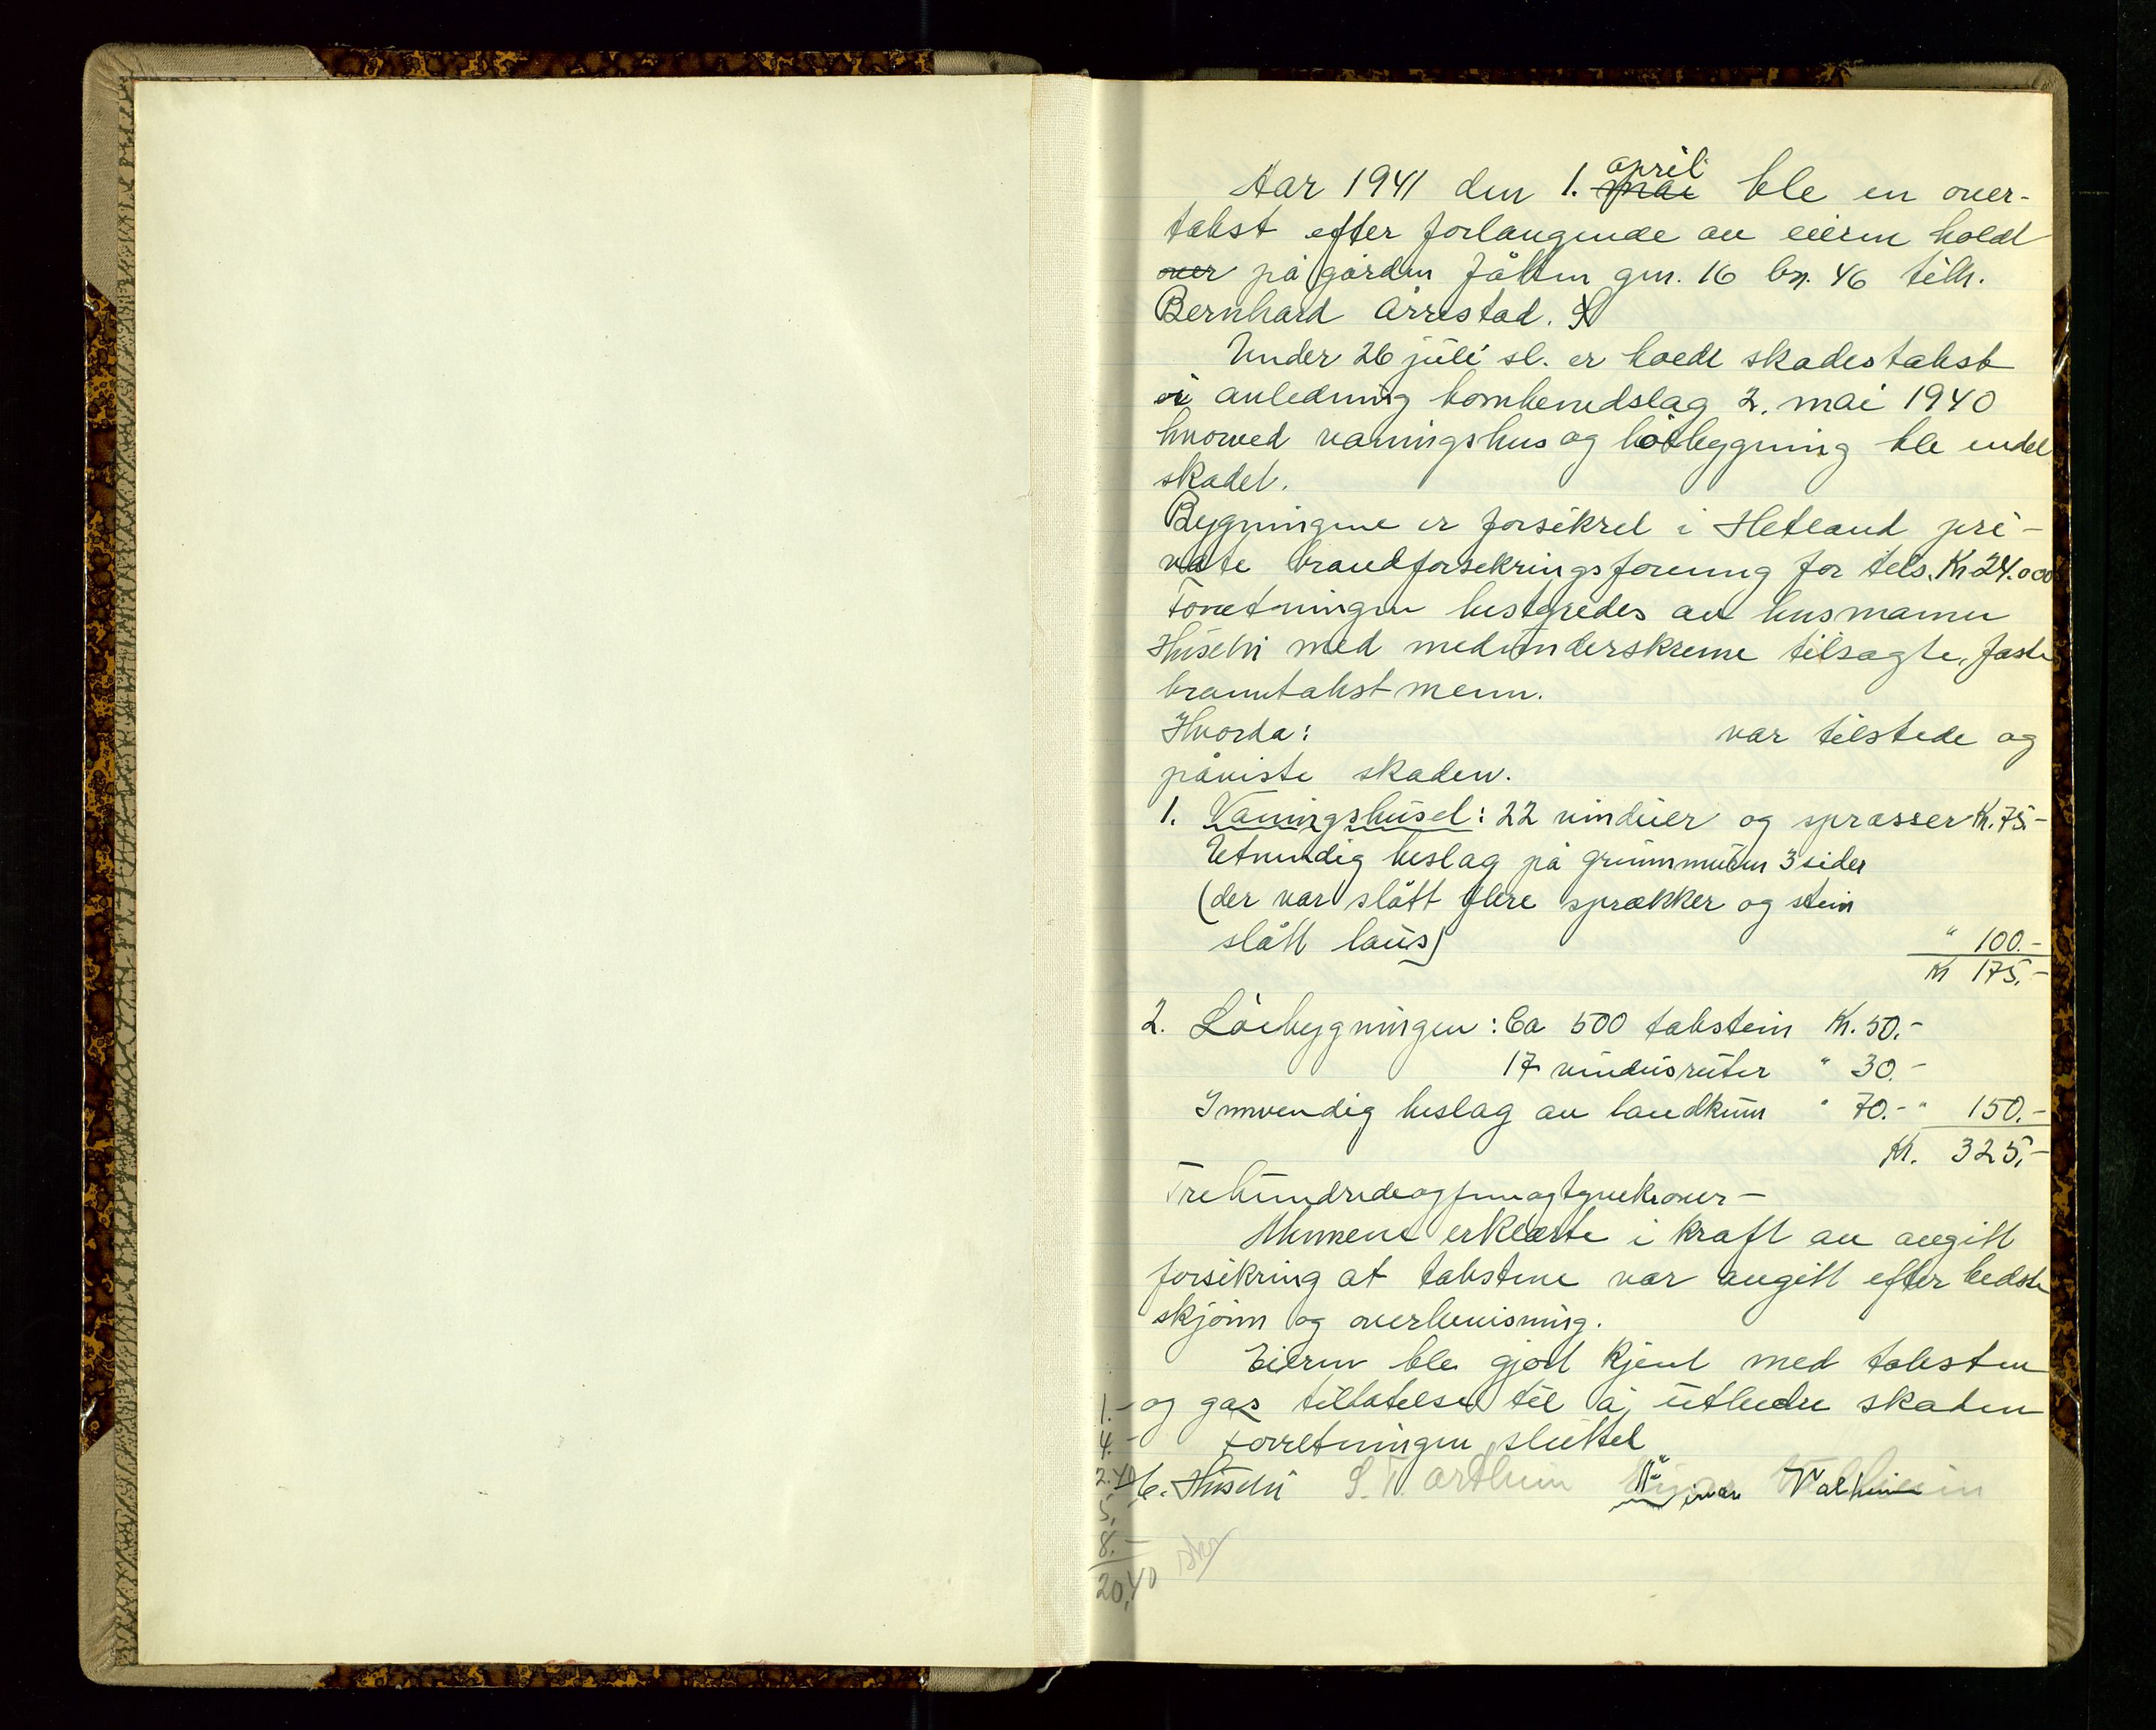 Aar 1941 den 1. april mai ble en over-
takst efter forlangende av eieren holdt
over på gården Jåtten gnr. 16 bn. 46 tilh.
Bernhard Årrestad.
Under 26 juli sl. er holdt skadestakst
i anledning bombenedslag 2. mai 1940
hvorved vaningshus og löebygning ble endel
skadet.
Bygningene er forsikret i Hetland pri-
vate brandforsekringsforening for tils. Kr 24.000
Forretningen bestyredes av lensmannen
Húsebö med medúnderskrevne tilsagte, faste
branntakstmenn.
Hvorda: var tilstede og
påviste skaden.
1. Vaningshúset: 22 vindúer og sprosser Kr. 75.-
Utvendig beslag på grúnnmúren 3 sider
(der var slått flere sprækker og stein
slått laús) " 100.-
Kr 175.-
2. Löebygningen: Ca 500 takstein Kr. 50.-
17 vindúsrúter " 30.-
Innvendig beslag av landkúm " 70.- " 150.-
Kr. 325.-
Trehúndredeogfemogtyvekroner-
Mennene erklærte i kraft av avgitt
forsikring at takstene var avgitt efter bedste
skjönn og overbevisning.
Eieren ble gjort kjent med taksten
1.- og gas tillatelse til å útbedre skaden
4.- Forretningen slúttet
2.40 C. Húsebö S. T. Arthun Einar Valheim
5,-
8.-
20,40